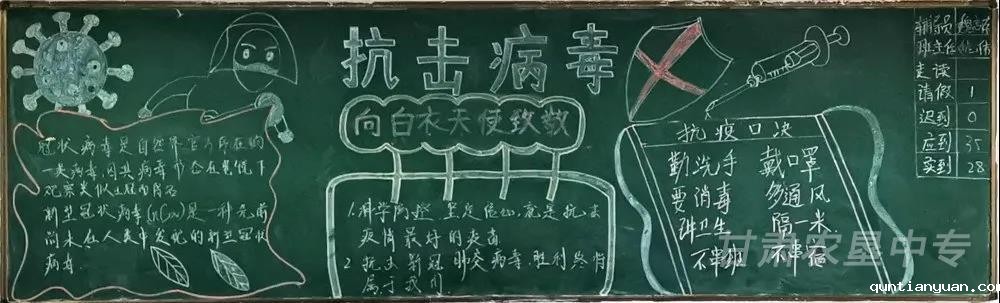 抗击病毒
向白衣天使致敬
冠状病毒是自然界广泛存在的
一类病毒,因其病毒形态在显微下
观察类似王冠而得名
新型冠状病毒(nCov)是一种先前
尚未在人类中发现的新型冠状
病毒.
1.科学防控 坚定信心,就是抗击
疫情最好的疫苗
2 抗击新冠 肺炎病毒,胜利终将
属于我们
抗疫口决
勤洗手 戴口罩
要消毒 多通风
讲卫生 隔一米
不串班 不串宿
辅导员
班主任
走读
请假 1
迟到 0
应到 35
实到 28
甘肃农垦中专
quntianyuan.com